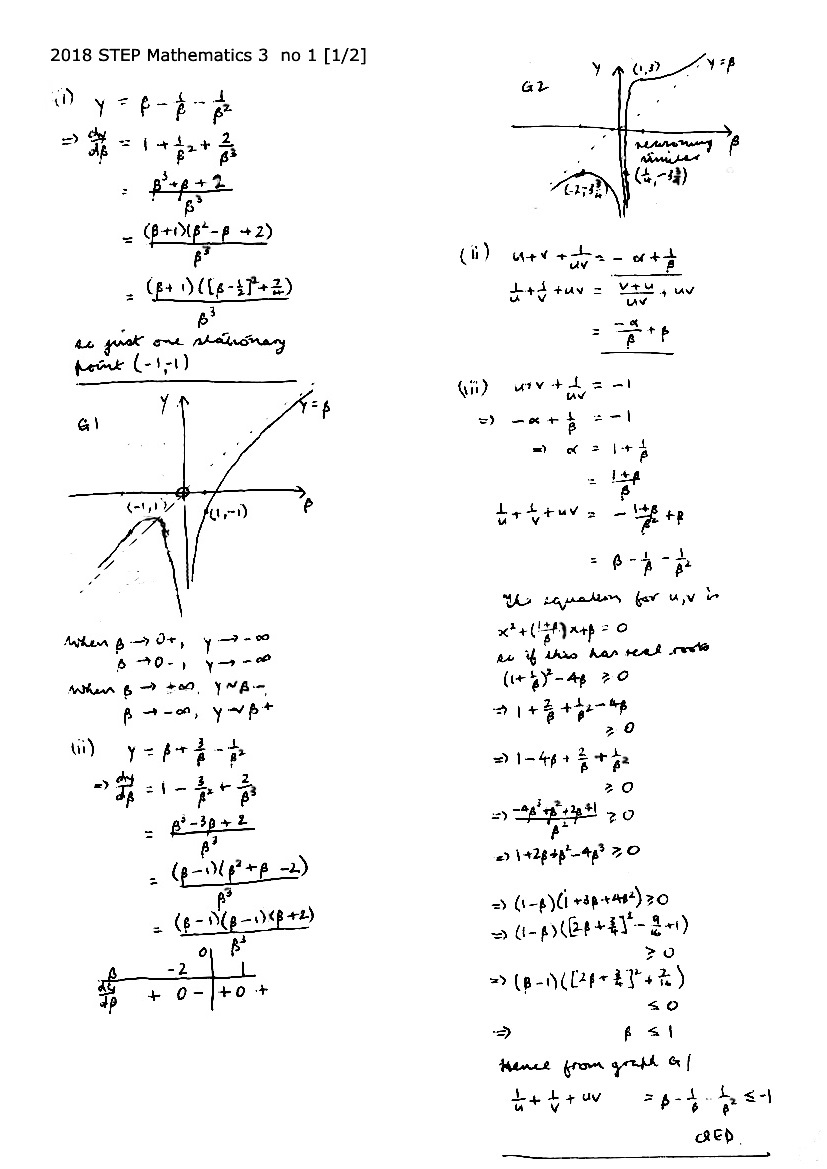 2018 STEP Mathematics 3 no 1 [1/2]
(i) y = β - 1/β - 1/β²
=> dy/dβ = 1 + 1/β² + 2/β³
= (β³+β+2)/β³
= (β+1)(β²-β+2)/β³
= (β+1)([β-½]²+7/4)/β³
so just one stationary
point (-1,-1)
G1
y
y=β
β
(-1,1)
(1,-1)
When β → 0+, y → -∞
β → 0-, y → -∞
When β → +∞, y ~ β-
β → -∞, y ~ β+
(ii) y = β + 3/β - 1/β²
=> dy/dβ = 1 - 3/β² + 2/β³
= (β³-3β+2)/β³
= (β-1)(β²+β-2)/β³
= (β-1)(β-1)(β+2)/β³
β -2 0 1
dy/dβ + 0 - + 0 +
G2
y
(1,3)
y=β
β
reasoning
similar
(-2,-3¾)
(¼,-3¾)
(ii) u+v+1/uv = -α+1/β
1/u+1/v+uv = (v+u)/uv + uv
= -α/β + β
(iii) u+v+1/uv = -1
=> -α+1/β = -1
=> α = 1+1/β
= (1+β)/β
1/u+1/v+uv = -(1+β)/β² + β
= β - 1/β - 1/β²
The equation for u,v is
x²+((1+β)/β)x+β = 0
so if this has real roots
(1+1/β)²-4β ≥ 0
=> 1+2/β+1/β²-4β
≥ 0
=> 1-4β+2/β+1/β²
≥ 0
=> (-4β³+β²+2β+1)/β² ≥ 0
=> 1+2β+β²-4β³ ≥ 0
=> (1-β)(1+3β+4β²) ≥ 0
=> (1-β)([2β+¾]²-9/16+1)
≥ 0
=> (β-1)([2β+¾]²+7/16)
≤ 0
=> β ≤ 1
Hence from graph G1
1/u+1/v+uv = β-1/β-1/β² ≤ -1
QED.